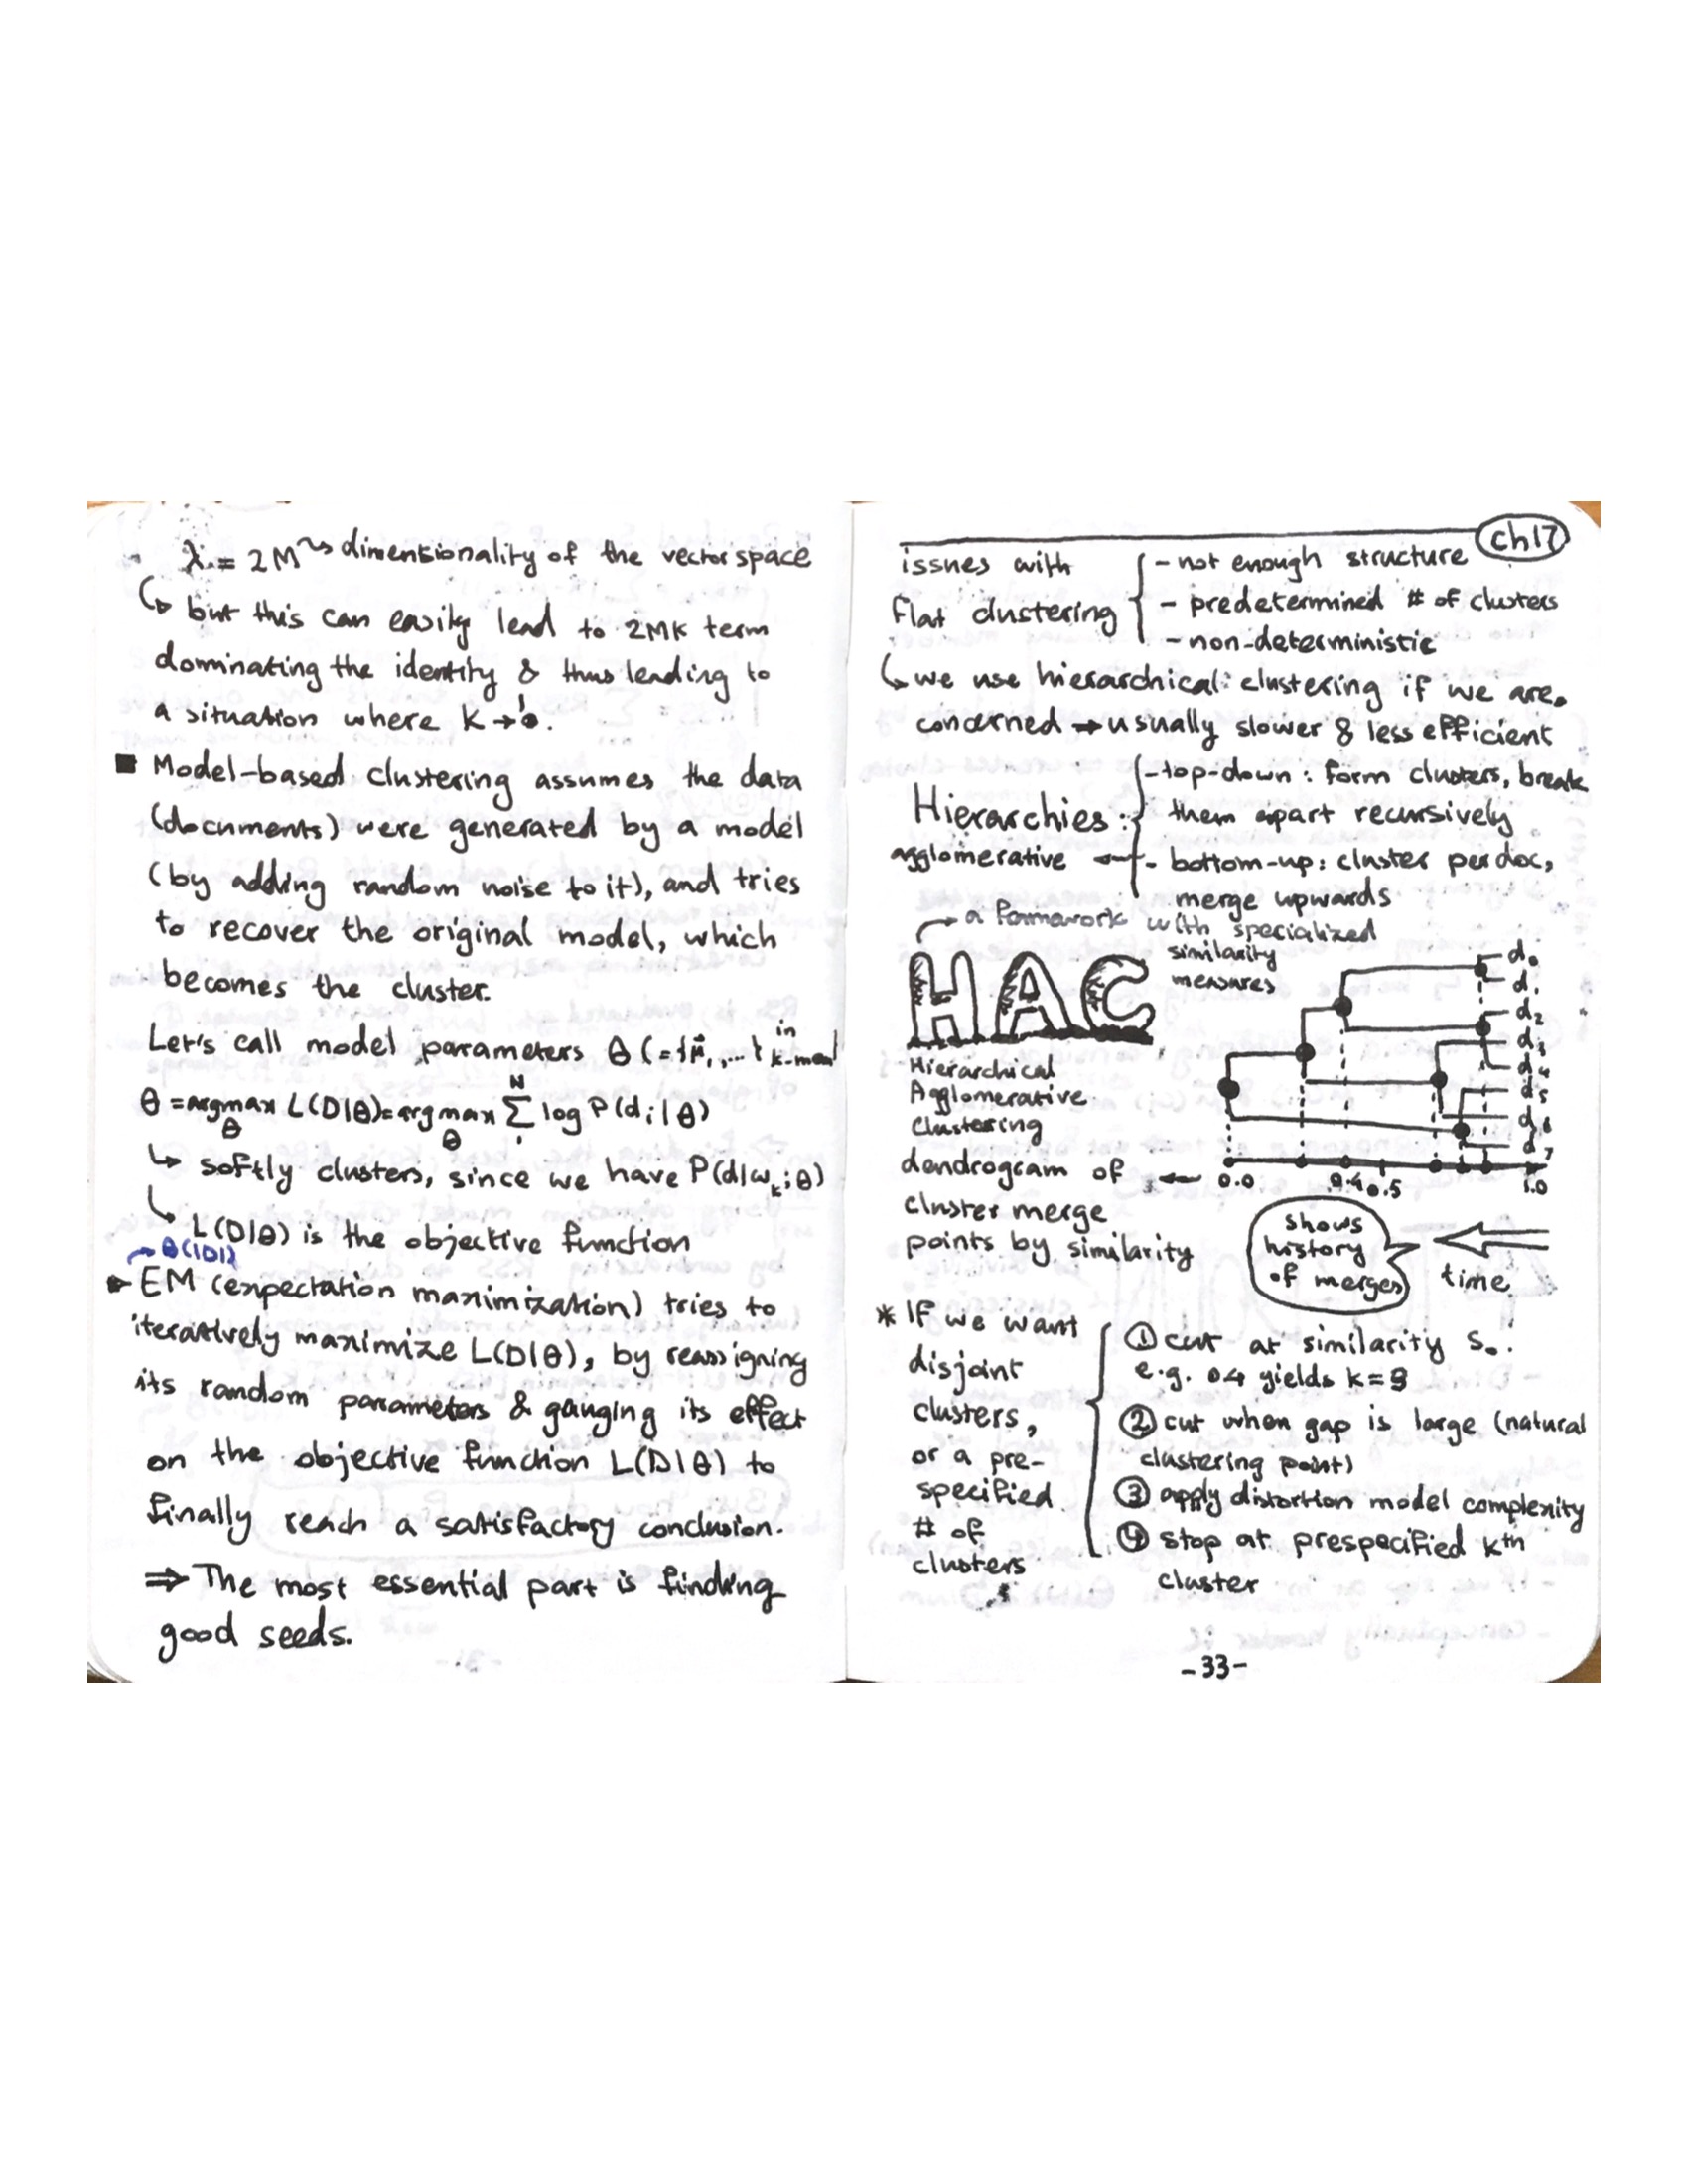 λ = 2M ⤳ dimensionality of the vector space
↳ but this can easily lead to 2MK term
dominating the identity & thus leading to
a situation where K → 
■ Model-based clustering assumes the data
(documents) were generated by a model
(by adding random noise to it), and tries
to recover the original model, which
becomes the cluster.
Let's call model parameters Θ (={μ⃗₁,...} in
Θ = argmax L(D|Θ) = argmax Σ log P(dᵢ|Θ)
Θ Θ
↳ softly clusters, since we have P(d|ωₖ;Θ)
↳ L(D|Θ) is the objective function
→ Θ(|D|)
► EM (expectation maximization) tries to
iteratively maximize L(D|Θ), by reassigning
its random parameters & gauging its effect
on the objective function L(D|Θ) to
finally reach a satisfactory conclusion.
⇒ The most essential part is finding
good seeds.
ch17
issues with
flat clustering
- not enough structure
- predetermined # of clusters
- non-deterministic
↳ we use hierarchical clustering if we are
concerned → usually slower & less efficient
Hierarchies:
- top-down: form clusters, break
them apart recursively
agglomerative ←
- bottom-up: cluster per doc,
merge upwards
→ a framework with specialized
similarity
measures
HAC
Hierarchical
Agglomerative
Clustering
d₀
d₁
d₂
d₃
d₄
d₅
d₆
d₇
0.0 0.4 0.5 1.0
dendrogram of ←
cluster merge
points by similarity
shows
history
of merges
time
* If we want
disjoint
clusters,
or a pre-
specified
# of
clusters
① cut at similarity S₀.
e.g. 0.4 yields k=
② cut when gap is large (natural
clustering point)
③ apply distortion model complexity
④ stop at prespecified Kth
cluster
-33-